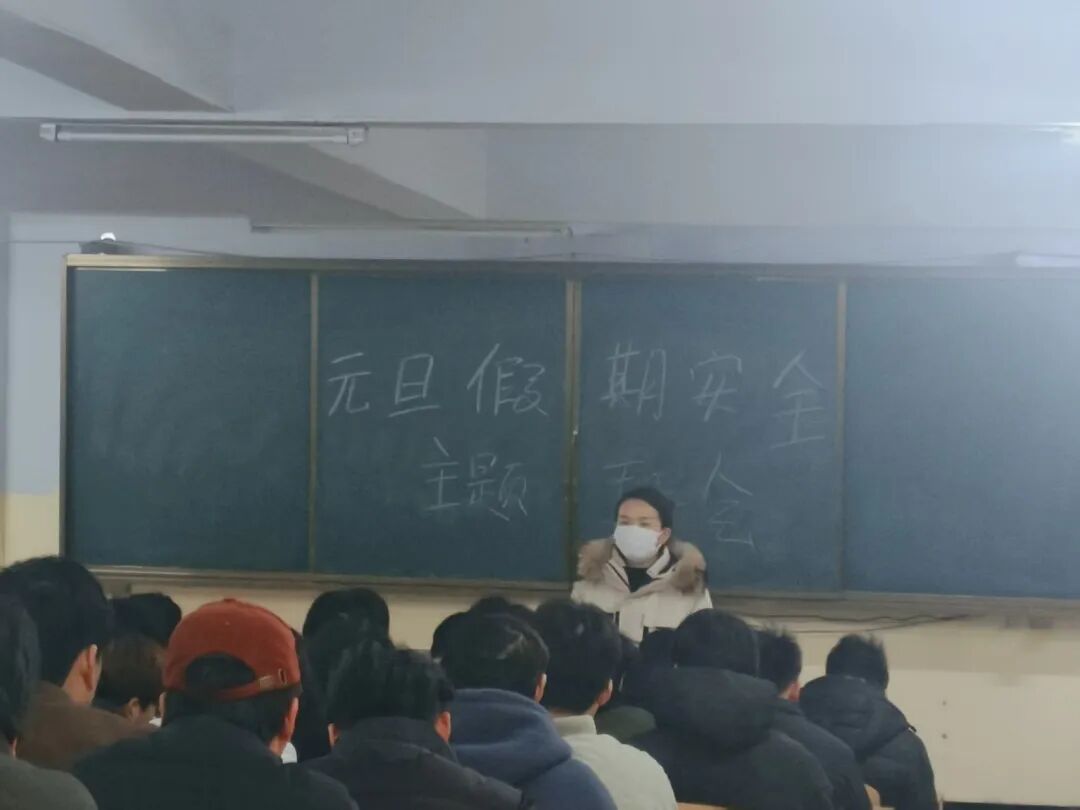 元旦假期安全
主题 会